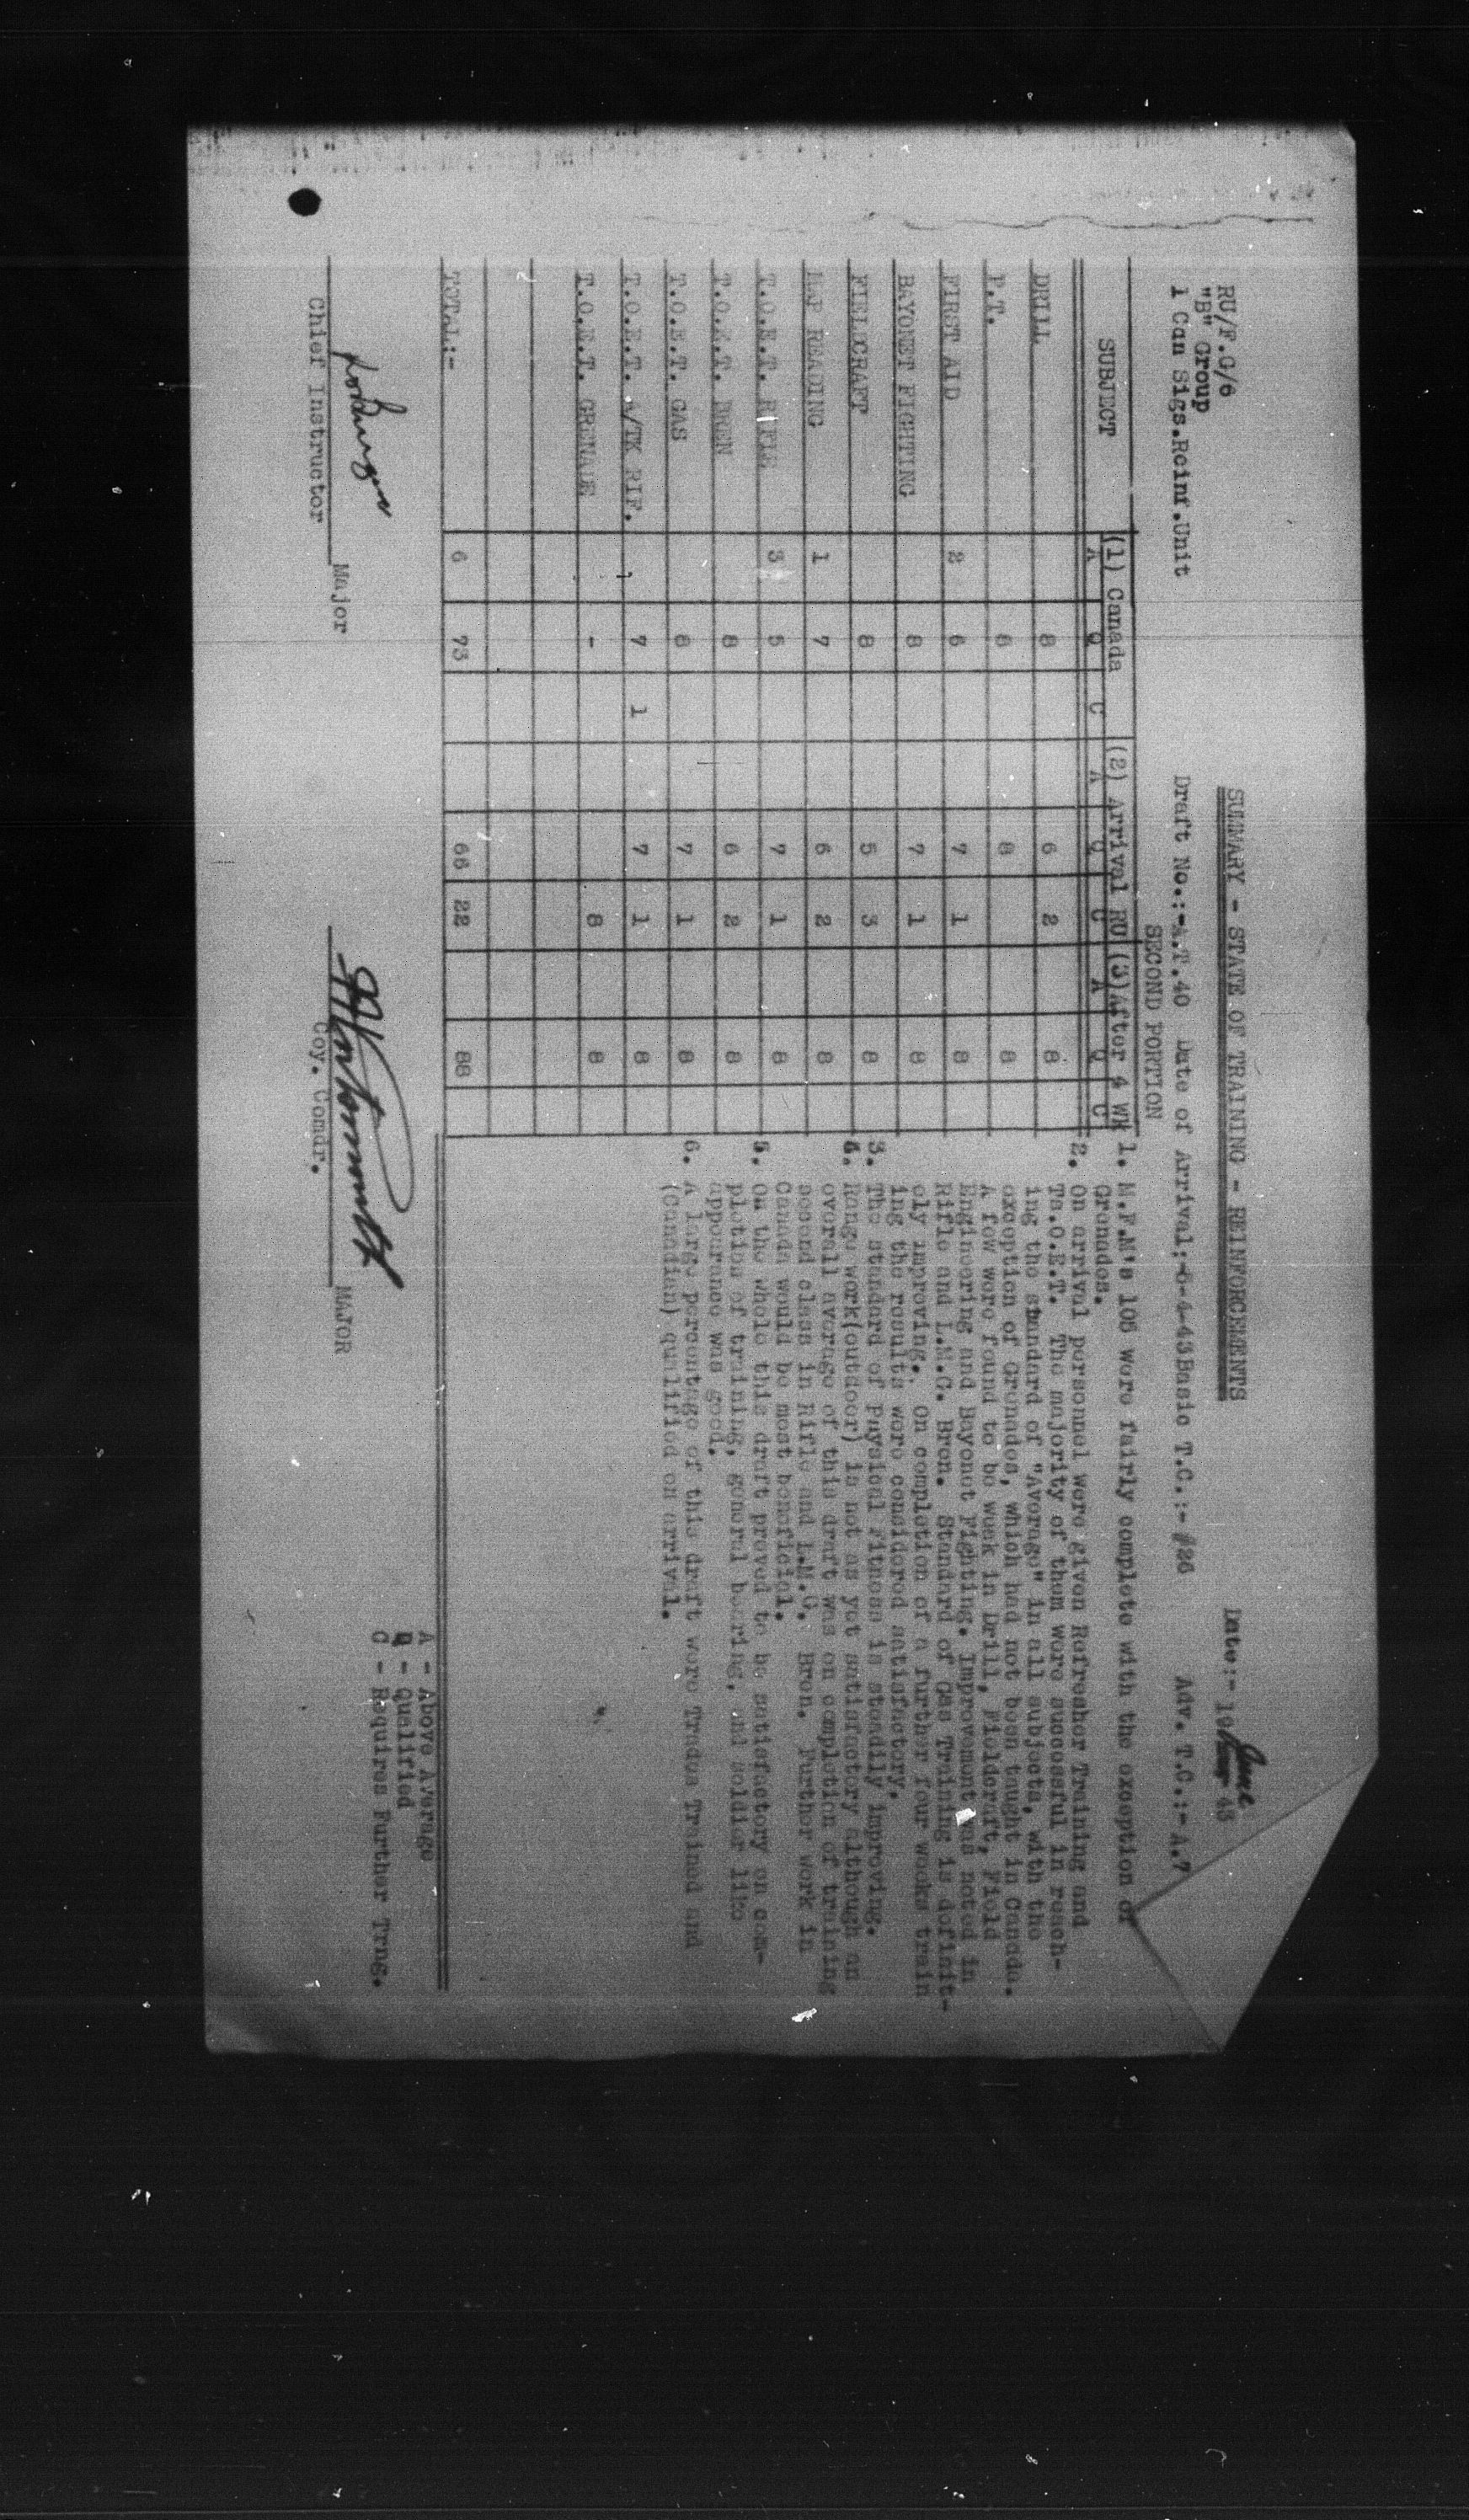 RU/F.G/6
"B" Group
1 Can Sigs.Reinf.Unit
SUMMARY - STATE OF TRAINING - REINFORCEMENTS
Date:- 10 June 43
Draft No.:-A.T.40 Date of Arrival:-6-4-43 Basic T.C.:- #26 Adv. T.C.:- A.7
SECOND PORTION
SUBJECT (1) Canada (2) Arrival RU (3)After 4 Wk
A Q C A Q C A Q C
DRILL 8 6 2 8
P.T. 8 8 8
FIRST AID 2 6 7 1 8
BAYONET FIGHTING 8 7 1 8
FIELDCRAFT 8 5 3 8
MAP READING 1 7 6 2 8
T.O.E.T. RIFLE 3 5 7 1 8
T.O.E.T. BREN 8 6 2 8
T.O.E.T. GAS 8 7 1 8
T.O.E.T. A/TK RIF. 7 1 7 1 8
T.O.E.T. GRENADE - 8 8
TOTAL:- 6 73 66 22 88
1. M.F.M's 105 were fairly complete with the exception of
Grenades.
2. On arrival personnel were given Refresher Training and
Ts.O.E.T. The majority of them were successful in reach-
ing the standard of "Average" in all subjects, with the
exception of Grenades, which had not been taught in Canada.
A few were found to be weak in Drill, Fieldcraft, Field
Engineering and Bayonet Fighting. Improvement was noted in
Rifle and L.M.G. Bren. Standard of Gas Training is definit-
ely improving. On completion of a further four weeks train
ing the results were considered satisfactory.
3. The standard of Physical Fitness is steadily improving.
4. Range work(outdoor) is not as yet satisfactory although an
overall average of this draft was on completion of training
second class in Rifle and L.M.G. Bren. Further work in
Canada would be most beneficial.
5. On the whole this draft proved to be satisfactory on com-
pletion of training, general bearing, and soldier like
appearance was good.
6. A large percentage of this draft were Trades Trained and
(Canadian) qualified on arrival.
A - Above Average
Q - Qualified
C - Requires Further Trng.
Major
Chief Instructor
MAJOR
Coy. Comdr.